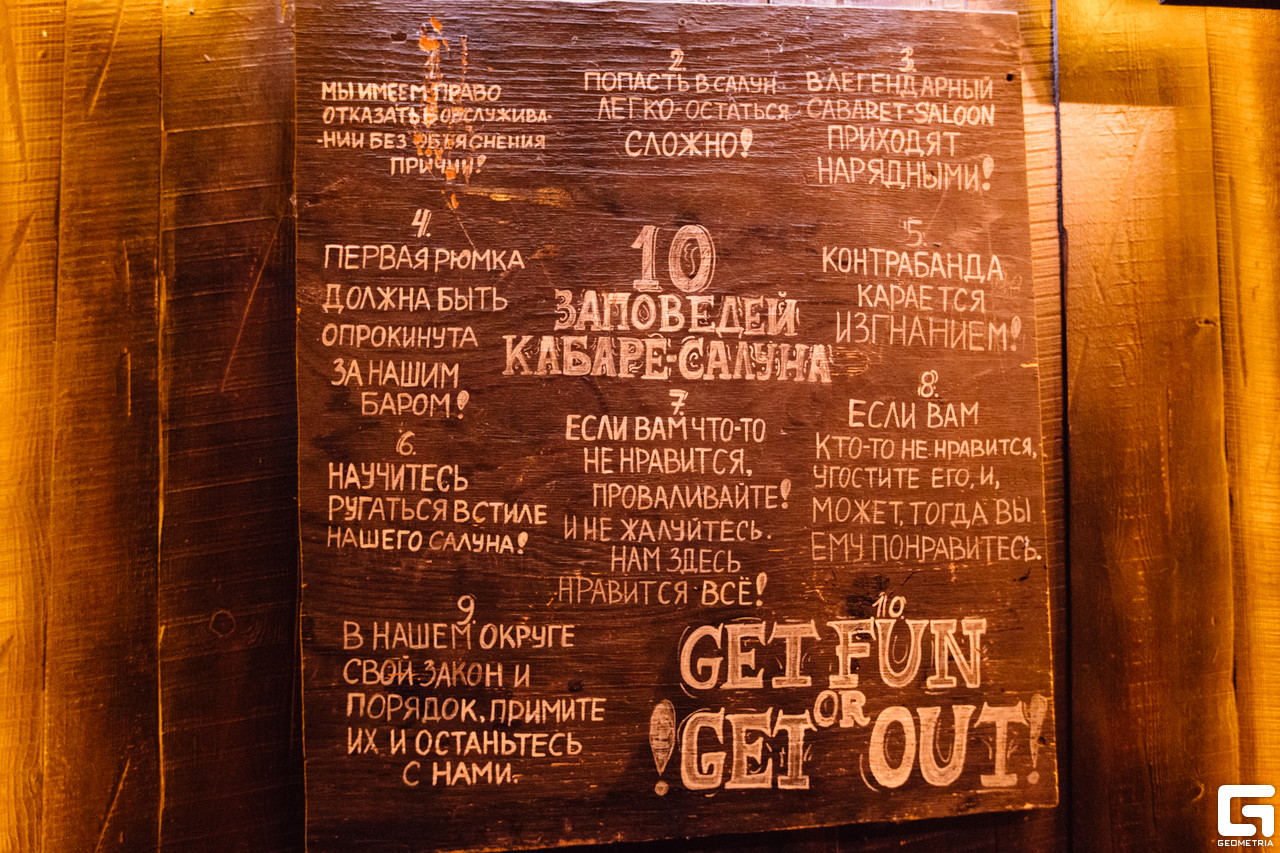 1.
МЫ ИМЕЕМ ПРАВО
ОТКАЗАТЬ В ОБСЛУЖИВА-
-НИИ БЕЗ ОБЪЯСНЕНИЯ
ПРИЧИН!
2.
ПОПАСТЬ В САЛУН-
ЛЕГКО-ОСТАТЬСЯ
СЛОЖНО!
3.
В ЛЕГЕНДАРНЫЙ
CABARET-SALOON
ПРИХОДЯТ
НАРЯДНЫМИ!
4.
ПЕРВАЯ РЮМКА
ДОЛЖНА БЫТЬ
ОПРОКИНУТА
ЗА НАШИМ
БАРОМ!
10
ЗАПОВЕДЕЙ
КАБАРЕ-САЛУНА
5.
КОНТРАБАНДА
КАРАЕТСЯ
ИЗГНАНИЕМ!
6.
НАУЧИТЕСЬ
РУГАТЬСЯ В СТИЛЕ
НАШЕГО САЛУНА!
7.
ЕСЛИ ВАМ ЧТО-ТО
НЕ НРАВИТСЯ,
ПРОВАЛИВАЙТЕ!
И НЕ ЖАЛУЙТЕСЬ.
НАМ ЗДЕСЬ
НРАВИТСЯ ВСЁ!
8.
ЕСЛИ ВАМ
КТО-ТО НЕ НРАВИТСЯ,
УГОСТИТЕ ЕГО, И,
МОЖЕТ, ТОГДА ВЫ
ЕМУ ПОНРАВИТЕСЬ.
9
В НАШЕМ ОКРУГЕ
СВОЙ ЗАКОН И
ПОРЯДОК, ПРИМИТЕ
ИХ И ОСТАНЬТЕСЬ
С НАМИ.
10
GET FUN
OR
!GET OUT!
GEOMETRIA